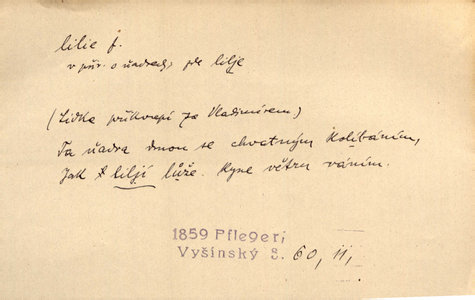 lilie f.
v přír. o ňadrech, pl. lilje
(Lidka překvapí se Vladimírem)
Ta ňadra dmou se chvatným kolibáním,
Jak liljí lůže. Kyne větru váním.
1859 Pfleger,
Vyšinský S. 60, 11,